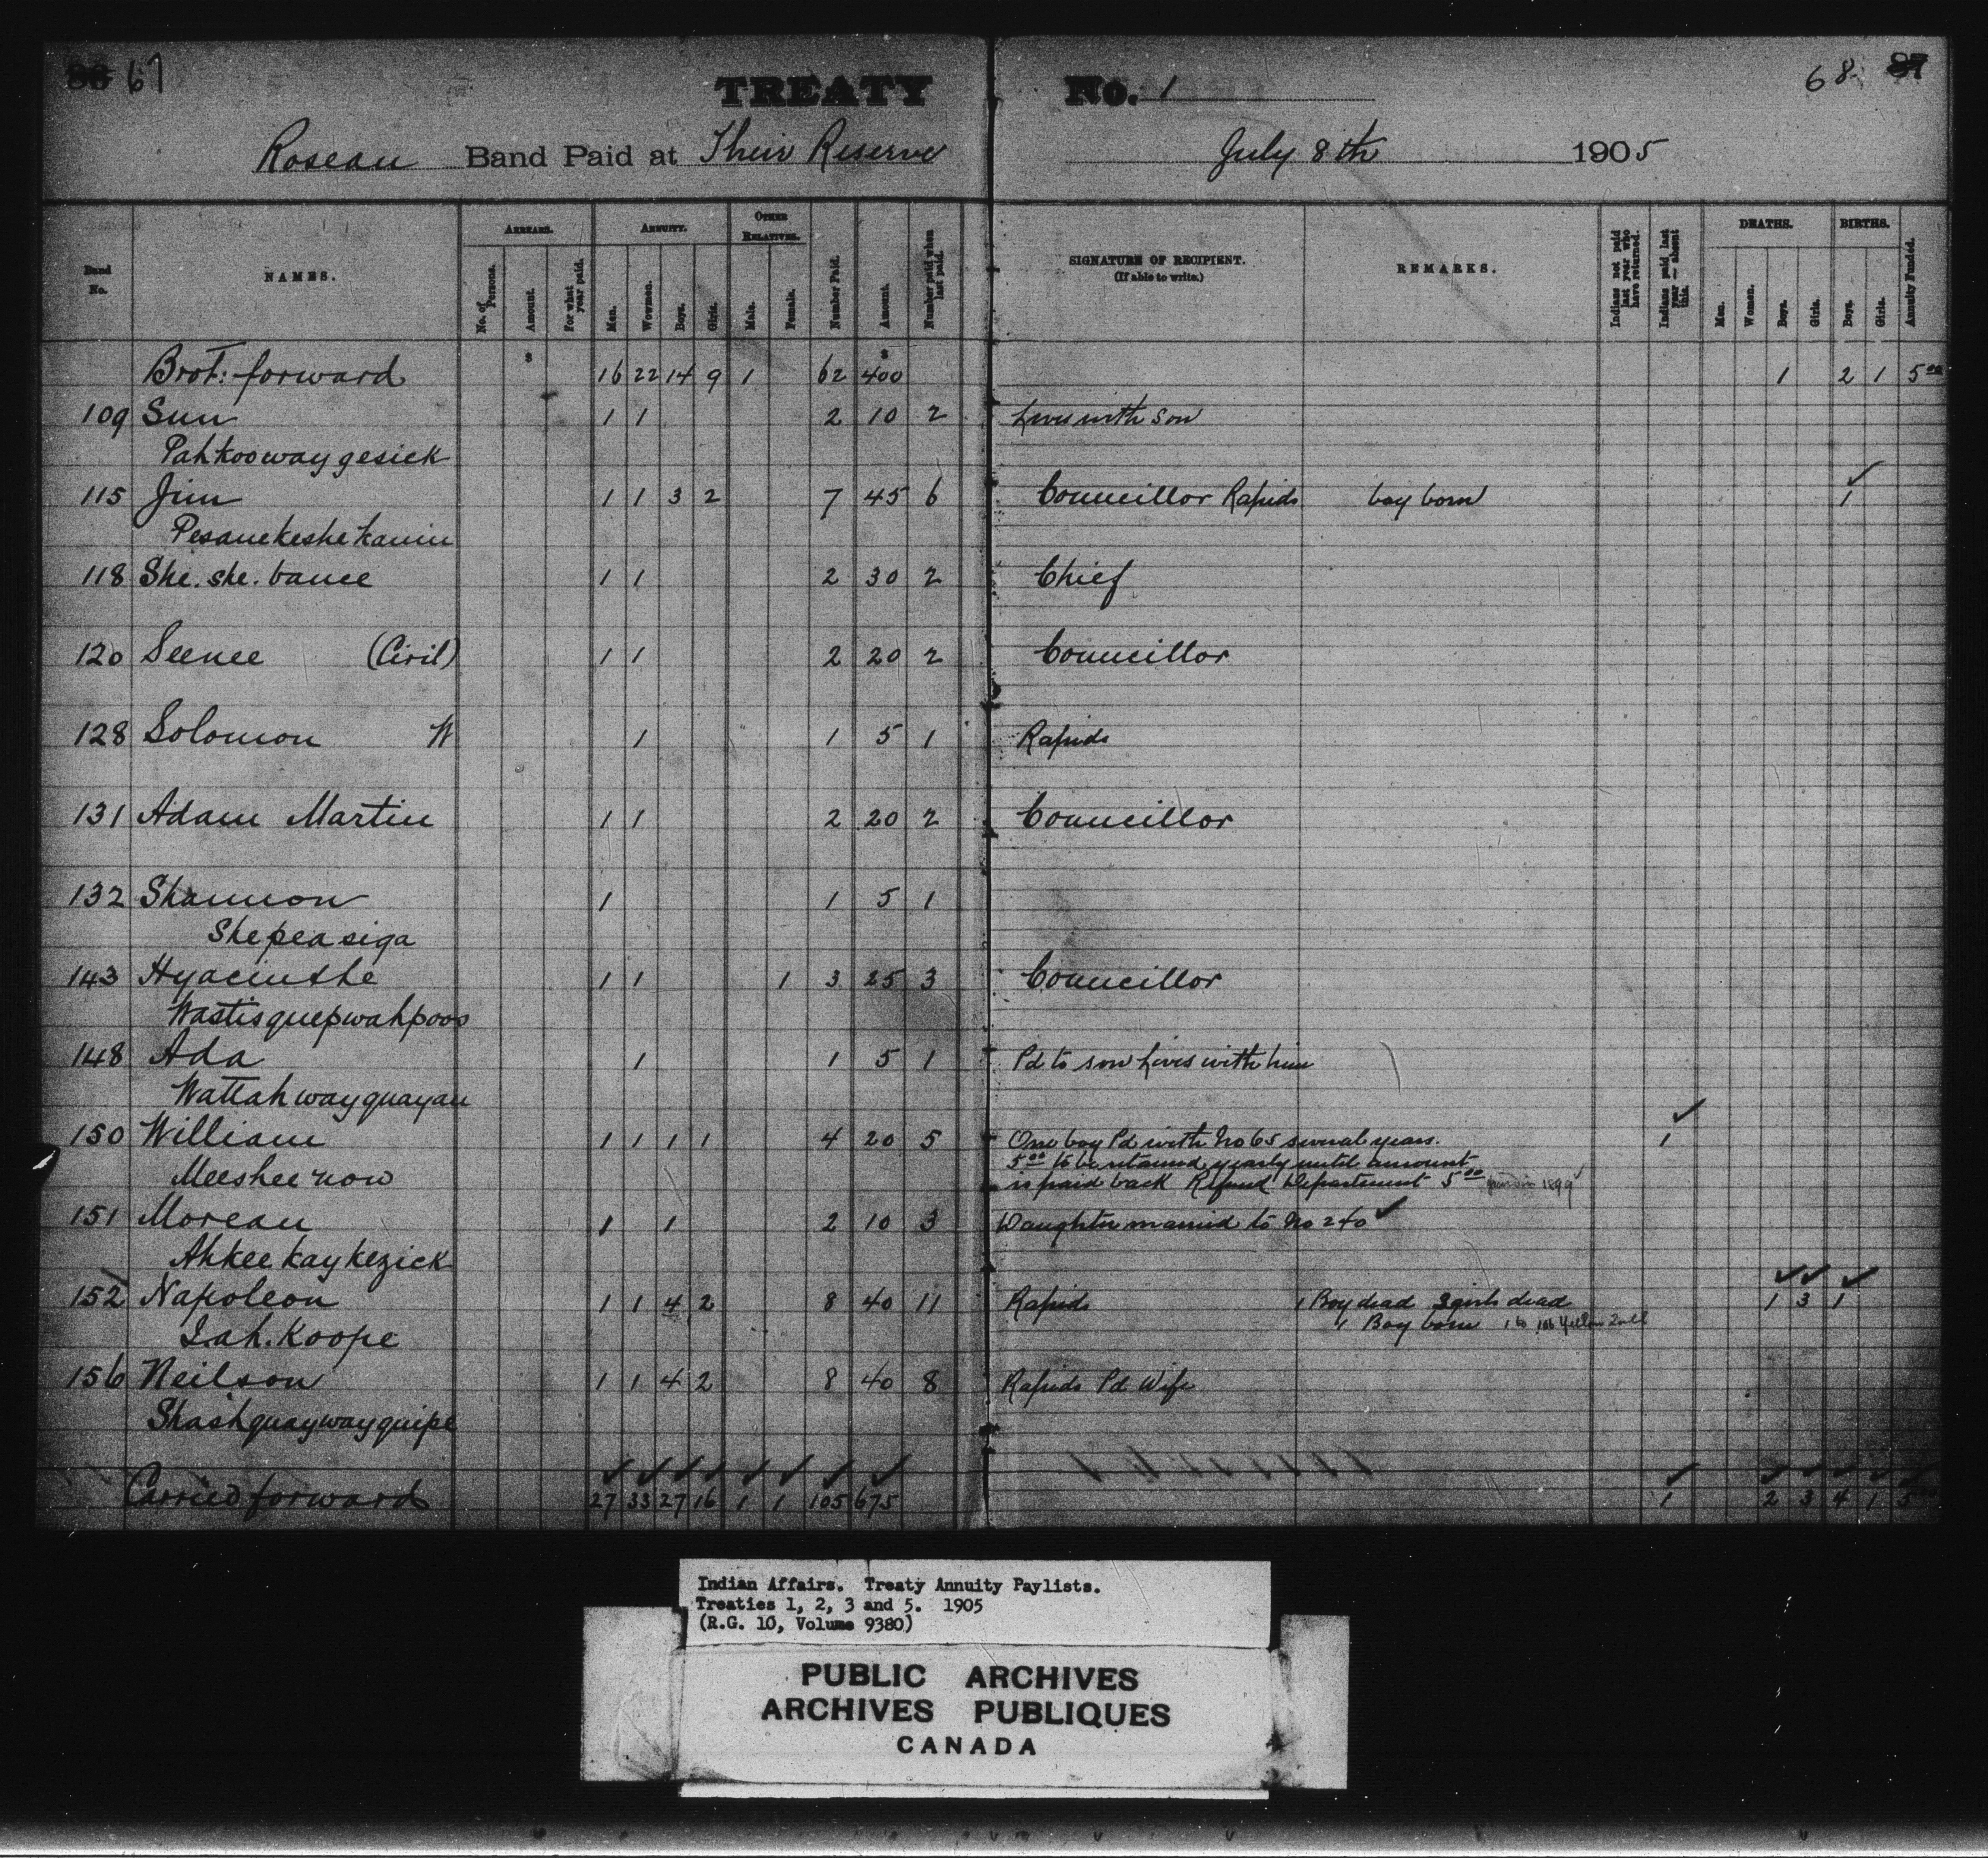 86 67
TREATY No. 1
68 87
Roseau Band Paid at Their Reserve July 8th 1905
Band No.
NAMES.
ARREARS.
No. of Persons.
Amount.
For what year paid.
ANNUITY.
Men.
Wowmen.
Boys.
Girls.
OTHER RELATIVES.
Male.
Female.
Number Paid.
Amount.
Number paid when last paid.
SIGNATURE OF RECIPIENT.
(If able to write.)
REMARKS.
Indians not paid last year who have returned.
Indians paid last year — absent this.
DEATHS.
Men.
Women.
Boys.
Girls.
BIRTHS.
Boys.
Girls.
Annuity Funded.
$ $
Brot: forward 16 22 14 9 1 62 400 1 2 1 5 00
109 Sun 1 1 2 10 2 Lives with Son
Pahkoowaygesick
115 Jim 1 1 3 2 7 45 6 Councillor Rapids boy born 1
Pesanekeshekanin
118 She. she. bance 1 1 2 30 2 Chief
120 Seenee (Civil) 1 1 2 20 2 Councillor
128 Solomon W 1 1 5 1 Rapids
131 Adam Martin 1 1 2 20 2 Councillor
132 Shannon 1 1 5 1
Shepeasiga
143 Hyacinthe 1 1 1 3 25 3 Councillor
Wastisquepwahpoos
148 Ada 1 1 5 1 Pd to son Lives with him
Wattahwayquayan
150 William 1 1 1 1 4 20 5 One boy Pd with No 65 several years. 1
5 00 to be retained yearly until amount
Meeshee now is paid back Refund Department 5 00 1899
151 Moreau 1 1 2 10 3 Daughter married to No 240
Ahkee kay kezick
152 Napoleon 1 1 4 2 8 40 11 Rapids 1 Boy dead 3 girls dead 1 3 1
Iah. Koope 1 Boy born 1 to
156 Neilson 1 1 4 2 8 40 8 Rapids Pd Wife
Shashquaywayquipe
Carried forward 27 33 27 16 1 1 105 675 1 2 3 4 1 5 00
Indian Affairs. Treaty Annuity Paylists.
Treaties 1, 2, 3 and 5. 1905
(R.G. 10, Volume 9380)
PUBLIC ARCHIVES
ARCHIVES PUBLIQUES
CANADA